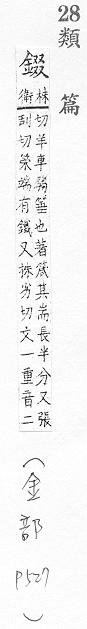 28類篇
錣
株
衛
切羊車騶箠也著箴其耑長半分又張
刮切策端有鐵又株劣切文一重音二
(金部 P527)